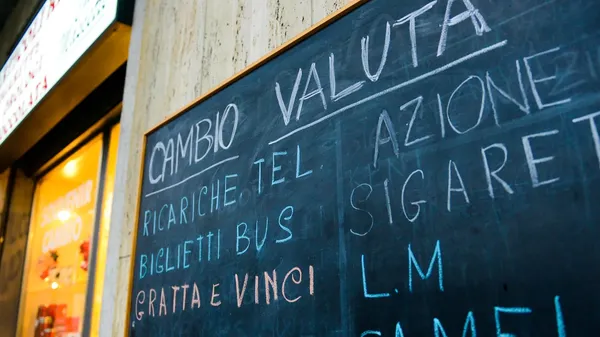 CAMBIO VALUTA
RICARICHE TEL.
BIGLIETTI BUS
GRATTA E VINCI
AZIONE
SIGARE
L.M
CAMEL